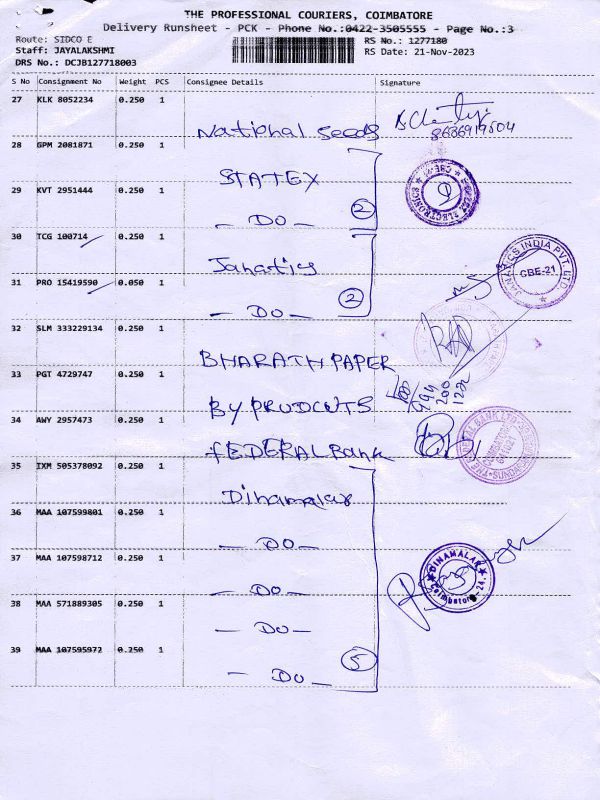 THE PROFESSIONAL COURIERS, COIMBATORE
Delivery Runsheet - PCK - Phone No.:0422-3505555 - Page No.:3
Route: SIDCO E
RS No.: 1277180
Staff: JAYALAKSHMI
RS Date: 21-Nov-2023
DRS No.: DCJB127718003
S No Consignment No Weight PCS Consignee Details Signature
27 KLK 8052234 0.250 1
National Seeds
8686919504
28 GPM 2081871 0.250 1
STATEX
29 KVT 2951444 0.250 1
— DO — 2
30 TCG 100714 0.250 1
Janatics
JANATICS INDIA PVT. LTD
CBE-21
31 PRO 15419590 0.050 1
— DO — 2
32 SLM 333229134 0.250 1
BHARATH PAPER
33 PGT 4729747 0.250 1
BY PRUDCUTS
994
200
122
34 AWY 2957473 0.250 1
FEDERAL Bank
35 IXM 505378092 0.250 1
Dinamalar
36 MAA 107599801 0.250 1
— DO —
37 MAA 107598712 0.250 1
— DO —
DINAMALAR
Coimbatore - 24.
38 MAA 571889305 0.250 1
— DO —
39 MAA 107595972 0.250 1
— DO — 5